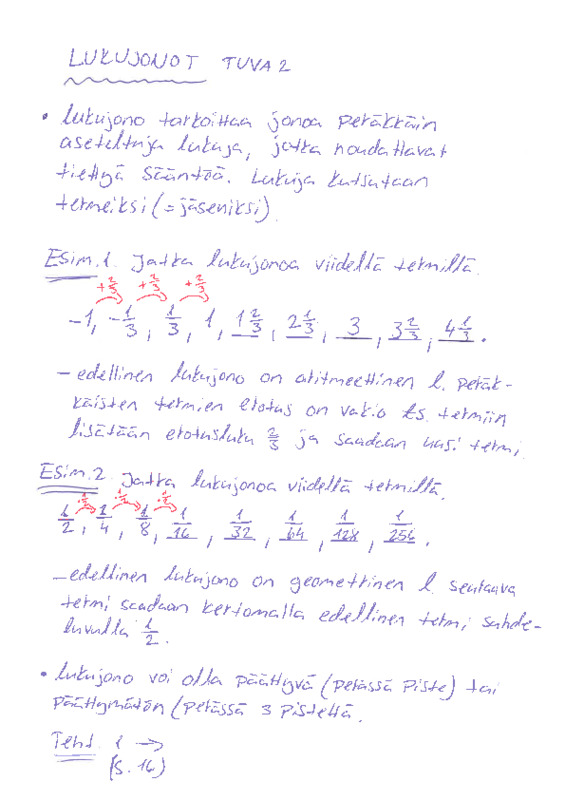 LUKUJONOT TUVA 2
• lukujono tarkoittaa jonoa peräkkäin
aseteltuja lukuja, jotka noudattavat
tiettyä sääntöä. Lukuja kutsutaan
termeiksi (=jäseniksi).
Esim.1. Jatka lukujonoa viidellä termillä.
+2/3 +2/3 +2/3
-1, -1/3, 1/3, 1, 1 2/3, 2 1/3, 3, 3 2/3, 4 1/3.
- edellinen lukujono on aritmeettinen l. peräk-
käisten termien erotus on vakio ts. termiin
lisätään erotusluku 2/3 ja saadaan uusi termi.
Esim.2. Jatka lukujonoa viidellä termillä.
·1/2 ·1/2 ·1/2
1/2, 1/4, 1/8, 1/16, 1/32, 1/64, 1/128, 1/256.
- edellinen lukujono on geometrinen l. seuraava
termi saadaan kertomalla edellinen termi suhde-
luvulla 1/2.
• lukujono voi olla päättyvä (perässä piste) tai
päättymätön (perässä 3 pistettä.
Teht. 1 →
(s. 16)